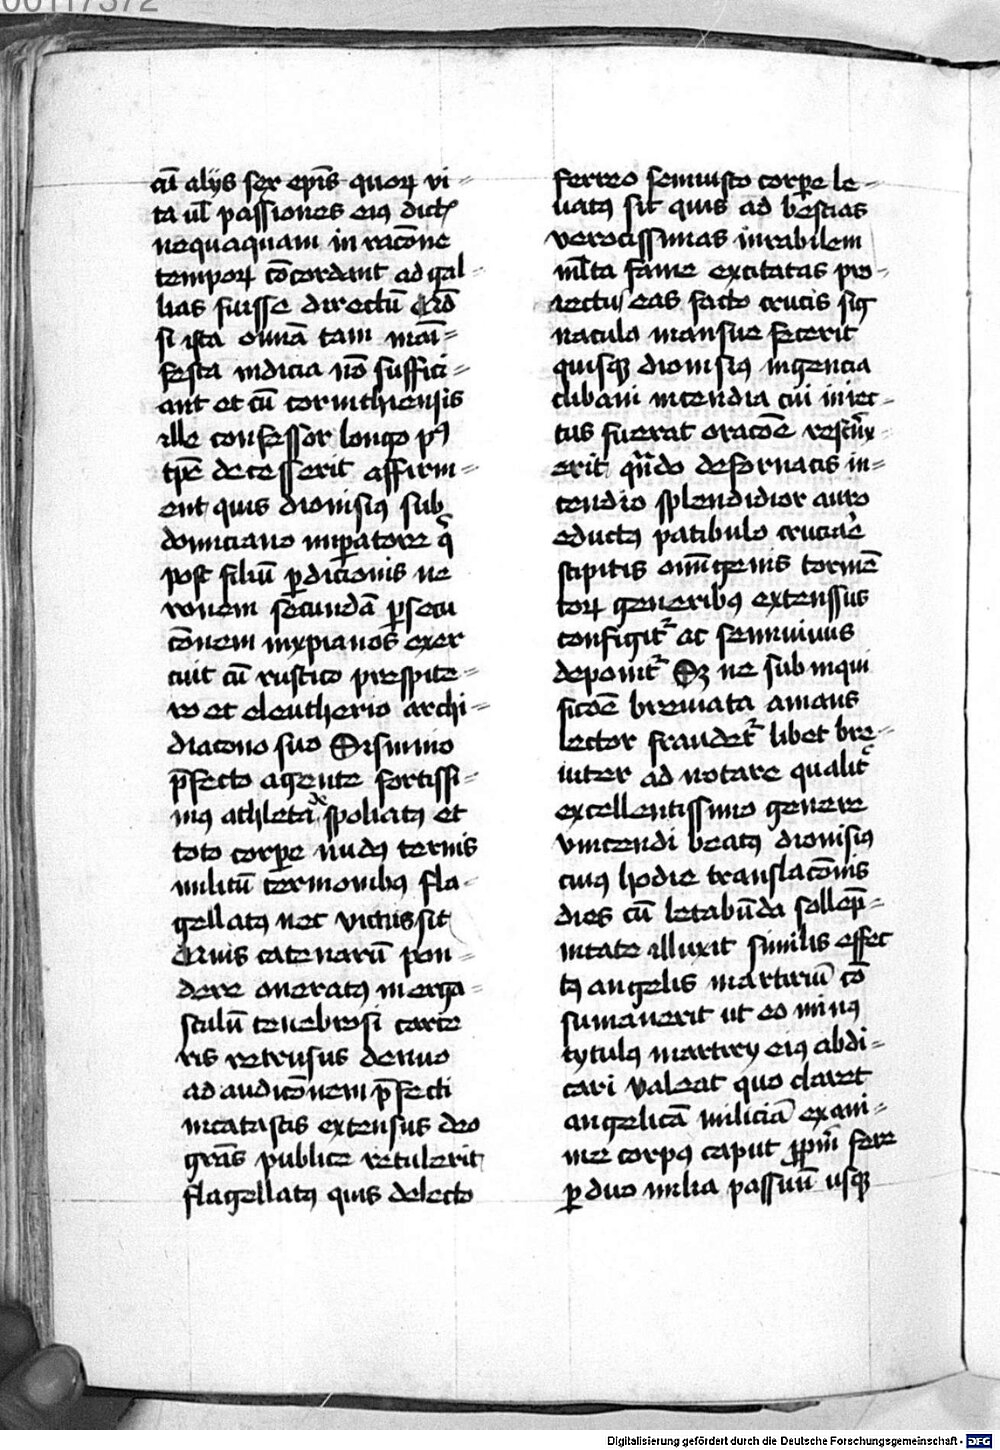 00117372
cū alijs sex ep̄is quoꝝ vi=
ta ul̄ passiones eiꝯ dict̉
nequaquam in rac̄one
tempoꝝ cōcordant ad gal=
lias fuisse directū Qđ
si ista om̄ia tam mani=
festa indicia nō suffici=
ant et cū corinthiensis
ille confessor longo pꝰ
tp̄e decesserit affirm=
ent quis dionisiꝯ sub
domiciano imꝑatore q̄
post filiū ꝑdic̄ionis ne
ronem secundā ꝑsecu
c̄onem in xp̄ianos exer
cuit cū rustico prespite=
ro et eleutherio archi=
diacono suo Sisinnio
p̄fecto agente fortissi=
mꝯ athleta de spoliatꝯ et
toto corꝑe nudꝯ ternis
militū termonibꝯ fla=
gellatꝯ nec victus sit
Quis catenarū pon=
dere oneratꝯ in erga=
stulū tenebrosi carce
ris retrusus denuo
ad audic̄onem p̄fecti
incatastis extensus deo
gr̄as publice retulerit
flagellatꝯ quis delecto
ferreo semiusto corꝑe le=
uatꝯ sit quis ad bestias
verocissimas inrabilem
ml̄ta fame excitatas pro=
iectus eas facto crucis sig
naculo mansue fecerit
quisqꝫ dionisiꝯ ingencia
clibani incendia cui iniec=
tus fuerat orac̄oe restinx=
erit qn̄do defornacis in=
cendio splendidior auro
eductꝯ patibulo cruciare
stipitis om̄igenis tormē
toꝝ generibꝯ extenssus
configit᷑ ac semiuiuus
deponit᷑ Sꝫ ne sub inqui
sic̄oe breuiata amans
lector fraudet᷑ libet bre=
uiter ad notare qualit᷑
excellentissimo genere
vincendi beatꝯ dionisiꝯ
cuiꝯ hodie translac̄onis
dies cū letabūda sollep̄=
nitate illuxit similis effec
tꝯ angelis martiriū cō
sumauerit ut eo minꝯ
tytulꝯ martirij eiꝯ abdi=
cari valeat quo claret
angelicā miliciā exani=
me corpꝯ caput ꝓpriū fere
ꝑ duo milia passuū usqꝫ
Digitalisierung gefördert durch die Deutsche Forschungsgemeinschaft - DFG